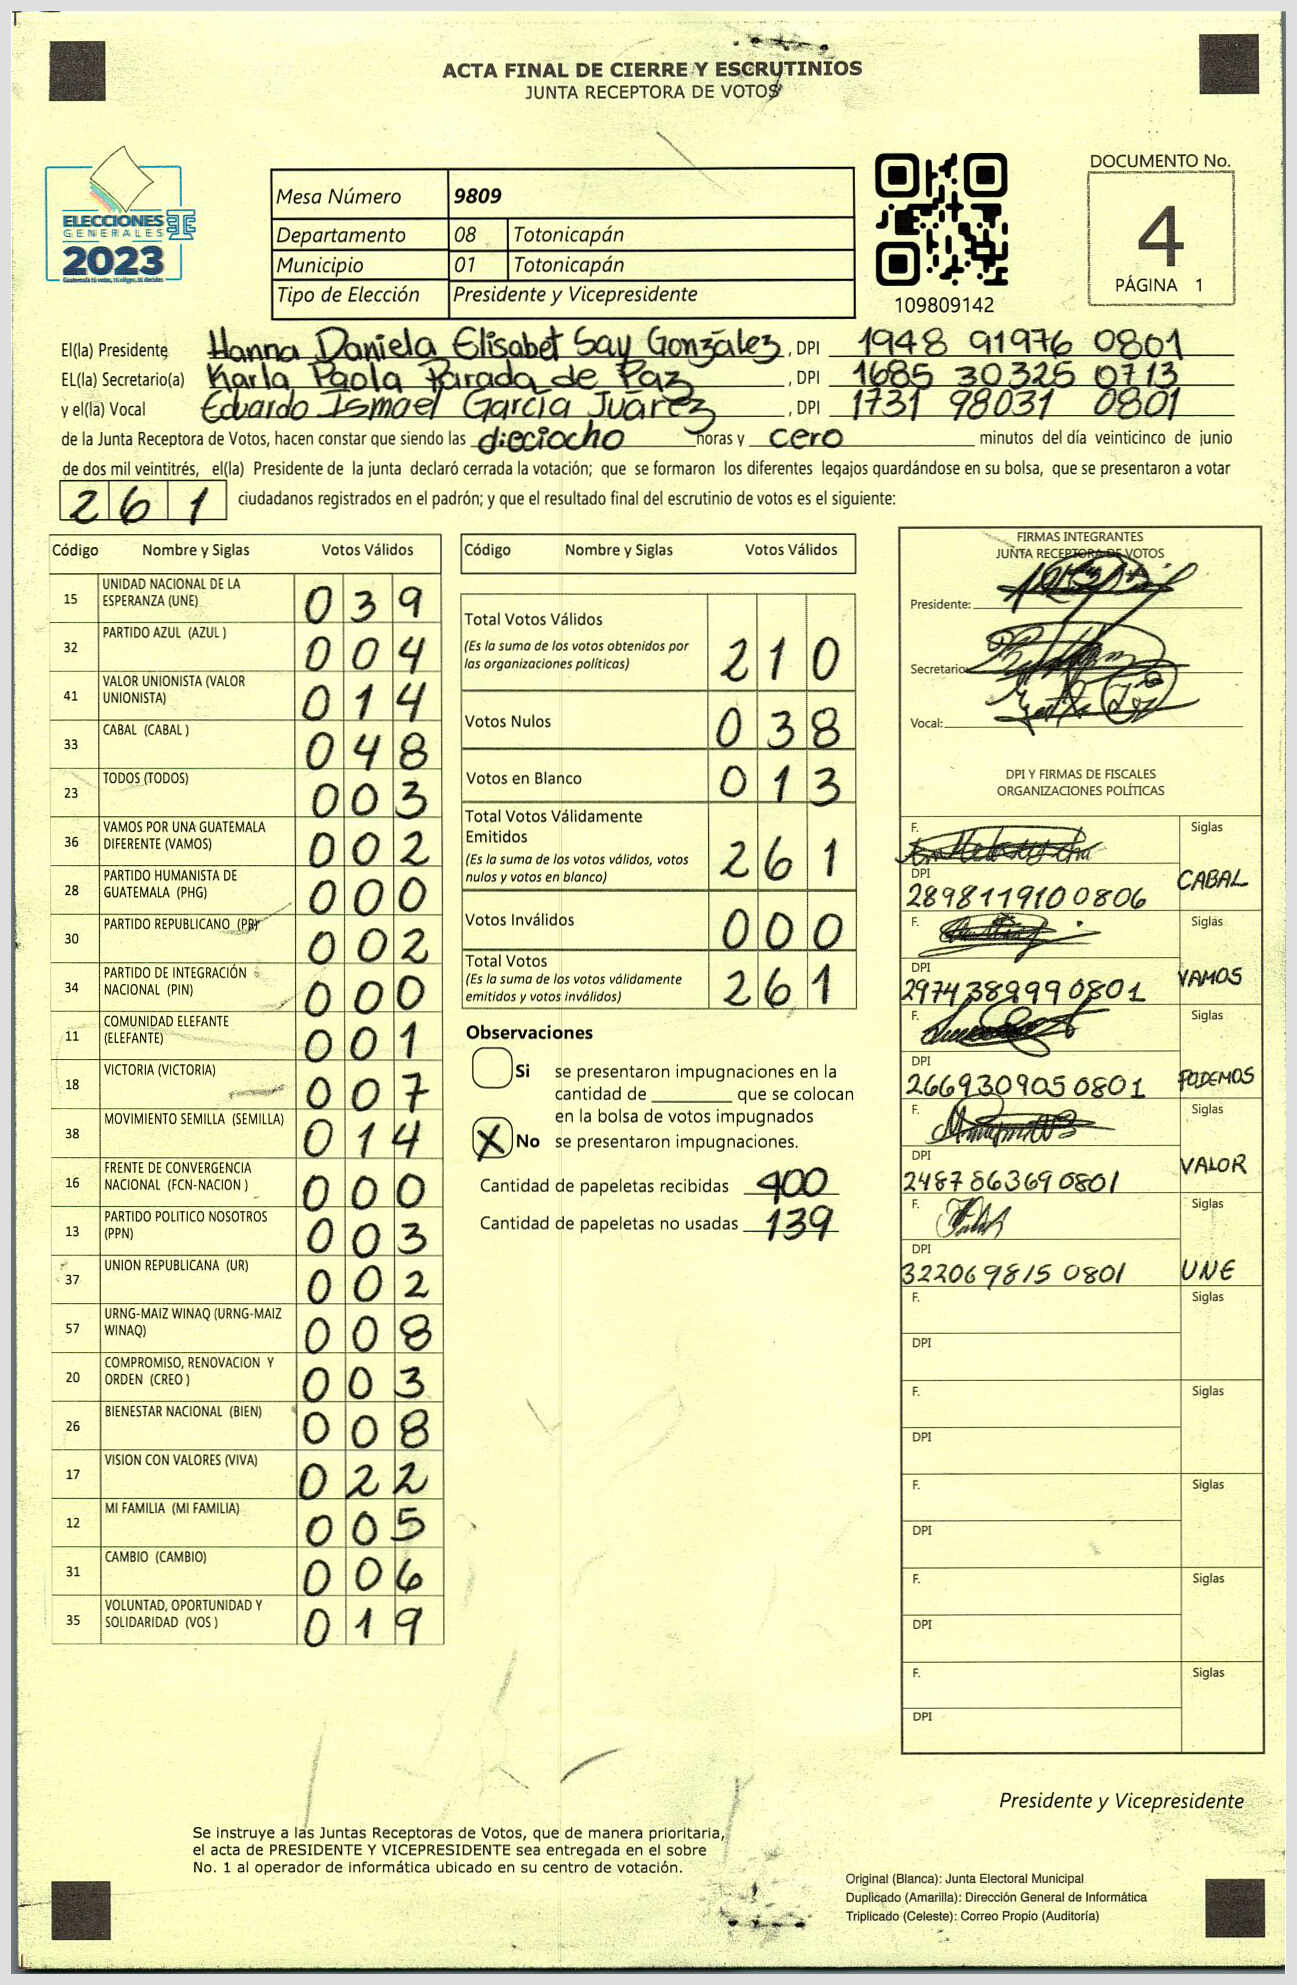 ACTA FINAL DE CIERRE Y ESCRUTINIOS
JUNTA RECEPTORA DE VOTOS
ELECCIONES
GENERALES
2023
Mesa Número 9809
Departamento 08 Totonicapán
Municipio 01 Totonicapán
Tipo de Elección Presidente y Vicepresidente
109809142
DOCUMENTO No.
4
PÁGINA 1
El(la) Presidente Hanna Daniela Elisabet Say González, DPI 1948 91976 0801
EL(la) Secretario(a) Karla Paola Parada de Paz, DPI 1685 30325 0713
y el(la) Vocal Eduardo Ismael García Juárez, DPI 1731 98031 0801
de la Junta Receptora de Votos, hacen constar que siendo las dieciocho horas y cero minutos del día veinticinco de junio
de dos mil veintitrés, el(la) Presidente de la junta declaró cerrada la votación; que se formaron los diferentes legajos guardándose en su bolsa, que se presentaron a votar
261 ciudadanos registrados en el padrón; y que el resultado final del escrutinio de votos es el siguiente:
Código Nombre y Siglas Votos Válidos
15 UNIDAD NACIONAL DE LA ESPERANZA (UNE) 039
32 PARTIDO AZUL (AZUL ) 004
41 VALOR UNIONISTA (VALOR UNIONISTA) 014
33 CABAL (CABAL ) 048
23 TODOS (TODOS) 003
36 VAMOS POR UNA GUATEMALA DIFERENTE (VAMOS) 002
28 PARTIDO HUMANISTA DE GUATEMALA (PHG) 000
30 PARTIDO REPUBLICANO (PR) 002
34 PARTIDO DE INTEGRACIÓN NACIONAL (PIN) 000
11 COMUNIDAD ELEFANTE (ELEFANTE) 001
18 VICTORIA (VICTORIA) 007
38 MOVIMIENTO SEMILLA (SEMILLA) 014
16 FRENTE DE CONVERGENCIA NACIONAL (FCN-NACION ) 000
13 PARTIDO POLITICO NOSOTROS (PPN) 003
37 UNION REPUBLICANA (UR) 002
57 URNG-MAIZ WINAQ (URNG-MAIZ WINAQ) 008
20 COMPROMISO, RENOVACION Y ORDEN (CREO ) 003
26 BIENESTAR NACIONAL (BIEN) 008
17 VISION CON VALORES (VIVA) 022
12 MI FAMILIA (MI FAMILIA) 005
31 CAMBIO (CAMBIO) 006
35 VOLUNTAD, OPORTUNIDAD Y SOLIDARIDAD (VOS ) 019
Código Nombre y Siglas Votos Válidos
Total Votos Válidos 210
(Es la suma de los votos obtenidos por
las organizaciones políticas)
Votos Nulos 038
Votos en Blanco 013
Total Votos Válidamente
Emitidos 261
(Es la suma de los votos válidos, votos
nulos y votos en blanco)
Votos Inválidos 000
Total Votos 261
(Es la suma de los votos válidamente
emitidos y votos inválidos)
Observaciones
Si se presentaron impugnaciones en la
cantidad de ________ que se colocan
en la bolsa de votos impugnados
X No se presentaron impugnaciones.
Cantidad de papeletas recibidas 400
Cantidad de papeletas no usadas 139
FIRMAS INTEGRANTES
JUNTA RECEPTORA DE VOTOS
Presidente:
Secretario:
Vocal:
DPI Y FIRMAS DE FISCALES
ORGANIZACIONES POLÍTICAS
F. Siglas
DPI
2898119100806 CABAL
F. Siglas
DPI
2974389990801 VAMOS
F. Siglas
DPI
2669309050801 PODEMOS
F. Siglas
DPI
2487863690801 VALOR
F. Siglas
DPI
3220698150801 UNE
F. Siglas
DPI
F. Siglas
DPI
F. Siglas
DPI
F. Siglas
DPI
F. Siglas
DPI
Presidente y Vicepresidente
Se instruye a las Juntas Receptoras de Votos, que de manera prioritaria,
el acta de PRESIDENTE Y VICEPRESIDENTE sea entregada en el sobre
No. 1 al operador de informática ubicado en su centro de votación.
Original (Blanca): Junta Electoral Municipal
Duplicado (Amarilla): Dirección General de Informática
Triplicado (Celeste): Correo Propio (Auditoría)